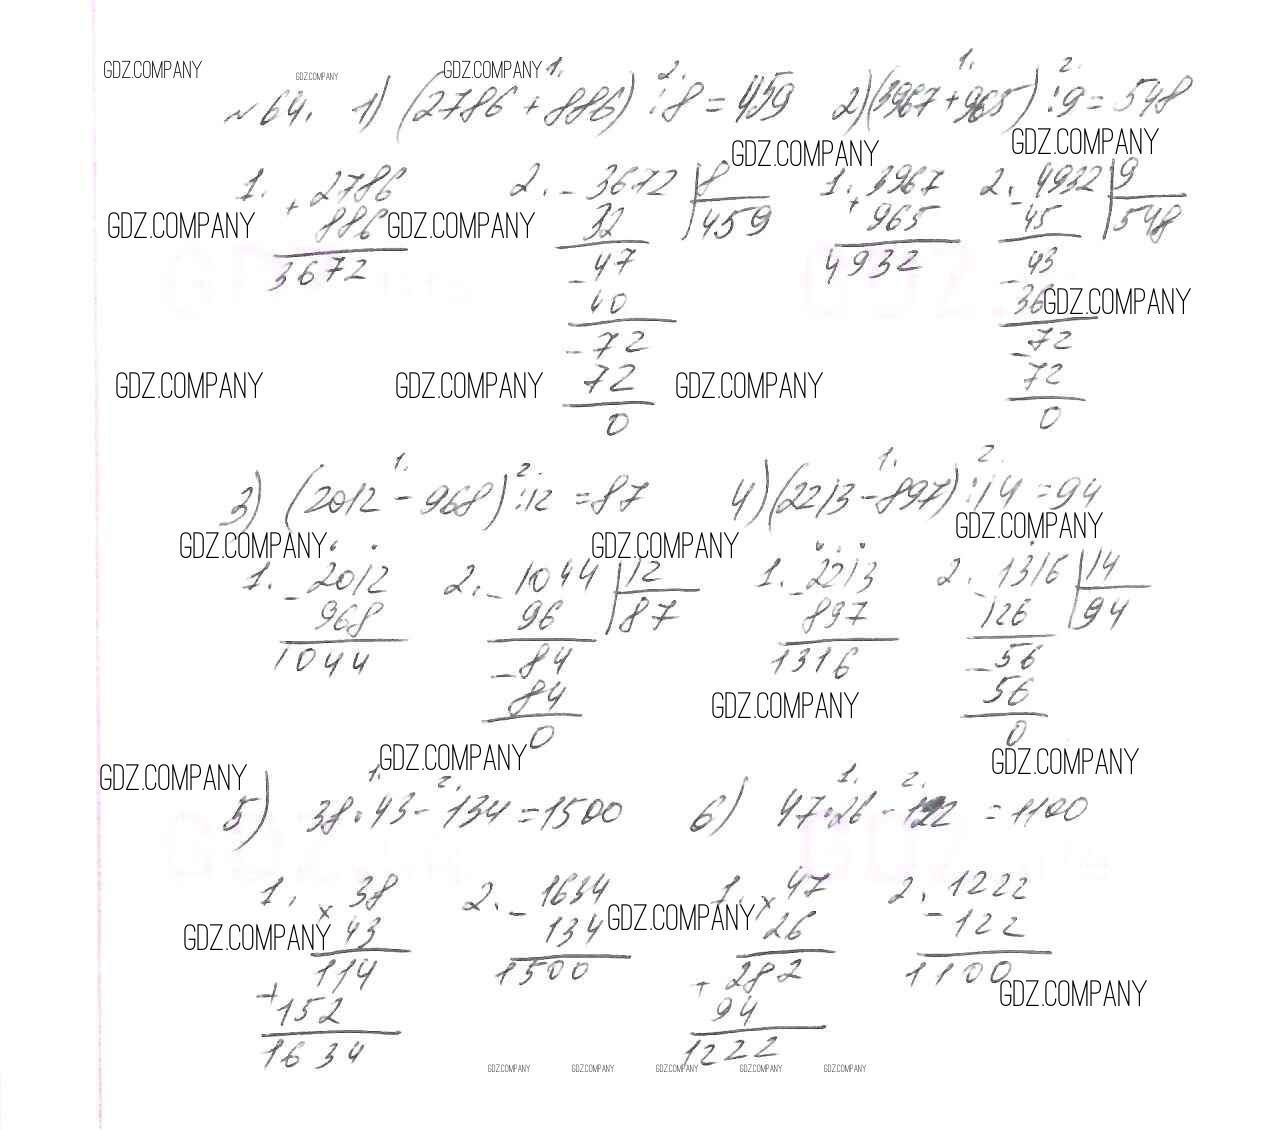 GDZ.COMPANY GDZ.COMPANY GDZ.COMPANY 1. 2. 1. 2.
№64. 1) (2786 + 886) : 8 = 459 2) (3967 + 965) : 9 = 548
GDZ.COMPANY GDZ.COMPANY
1. + 2786 2. - 3672 8 1. + 3967 2. - 4932 9
GDZ.COMPANY 886 GDZ.COMPANY 32 459 965 45 548
3672 - 47 4932 - 43
40 36 GDZ.COMPANY
- 72 - 72
GDZ.COMPANY GDZ.COMPANY 72 GDZ.COMPANY 72
0 0
1. 2. 1. 2.
3) (2012 - 968) : 12 = 87 4) (2213 - 897) : 14 = 94
GDZ.COMPANY GDZ.COMPANY GDZ.COMPANY
1. - 2012 2. - 1044 12 1. - 2213 2. - 1316 14
968 96 87 897 126 94
1044 - 84 1316 - 56
84 GDZ.COMPANY 56
0 0
GDZ.COMPANY GDZ.COMPANY GDZ.COMPANY
1. 2. 1. 2.
5) 38 · 43 - 134 = 1500 6) 47 · 26 - 122 = 1100
1. x 38 2. - 1634 1. x 47 2. - 1222
GDZ.COMPANY 43 134 GDZ.COMPANY 26 122
114 1500 + 282 1100 GDZ.COMPANY
+ 152 94
1634 1222
GDZ.COMPANY GDZ.COMPANY GDZ.COMPANY GDZ.COMPANY GDZ.COMPANY